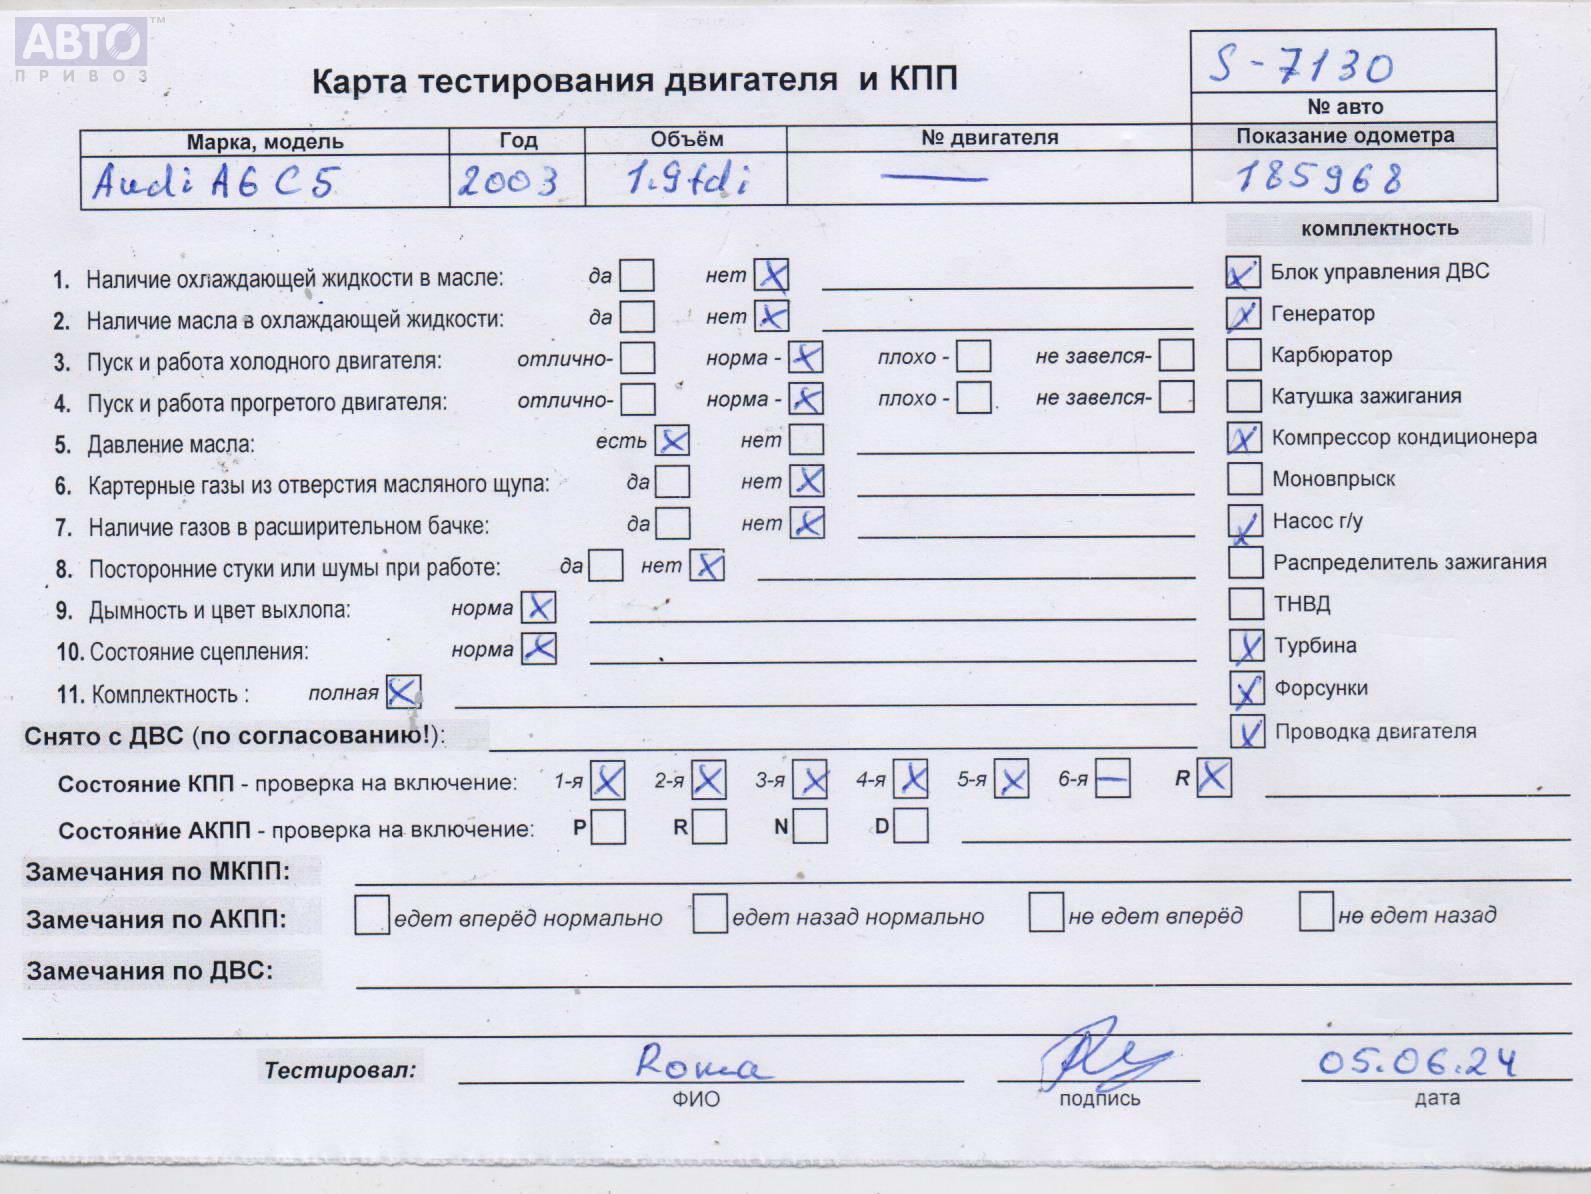 АВТО™
ПРИВОЗ
Карта тестирования двигателя и КПП
S-7130
№ авто
Марка, модель Год Объём № двигателя Показание одометра
Audi A6 C5 2003 1.9tdi — 185968
комплектность
1. Наличие охлаждающей жидкости в масле: да нет X
Блок управления ДВС X
2. Наличие масла в охлаждающей жидкости: да нет X
Генератор X
3. Пуск и работа холодного двигателя: отлично- норма - X плохо - не завелся-
Карбюратор
4. Пуск и работа прогретого двигателя: отлично- норма - X плохо - не завелся-
Катушка зажигания
5. Давление масла: есть X нет
Компрессор кондиционера X
6. Картерные газы из отверстия масляного щупа: да нет X
Моновпрыск
7. Наличие газов в расширительном бачке: да нет X
Насос г/у X
8. Посторонние стуки или шумы при работе: да нет X
Распределитель зажигания
9. Дымность и цвет выхлопа: норма X
ТНВД
10. Состояние сцепления: норма X
Турбина X
11. Комплектность : полная X
Форсунки X
Снято с ДВС (по согласованию!):
Проводка двигателя X
Состояние КПП - проверка на включение: 1-я X 2-я X 3-я X 4-я X 5-я X 6-я — R X
Состояние АКПП - проверка на включение: P R N D
Замечания по МКПП:
Замечания по АКПП: едет вперёд нормально едет назад нормально не едет вперёд не едет назад
Замечания по ДВС:
Тестировал: Roma 05.06.24
ФИО подпись дата